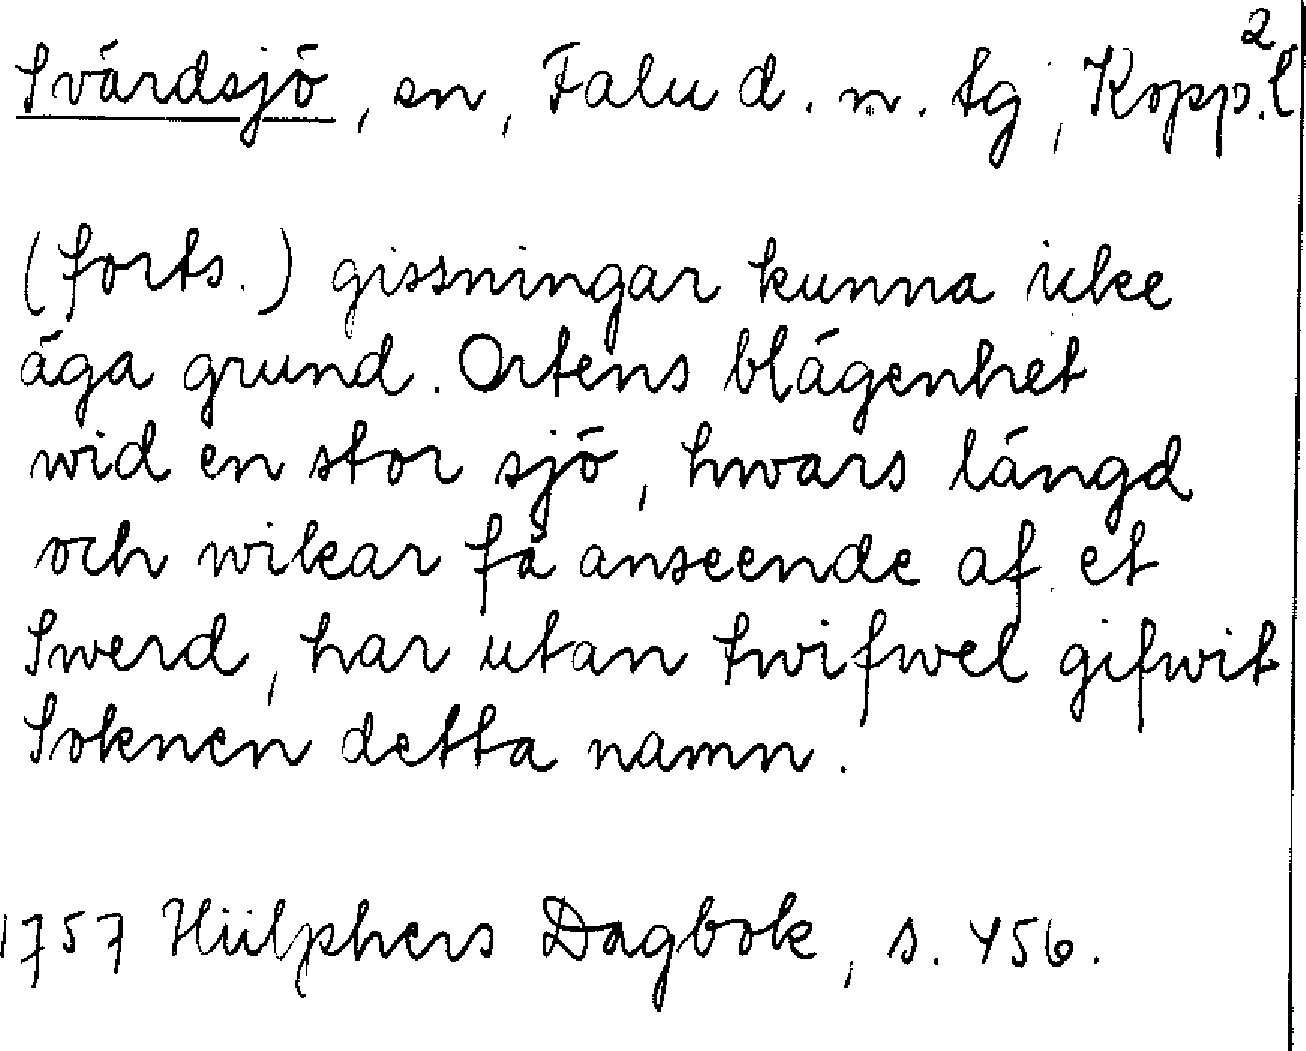 2
Svärdsjö, sn, Falu d. n. tg, Kopp. l
(forts.) gissningar kunna icke
äga grund. Ortens blägenhet
wid en stor sjö, hwars längd
och wikar få anseende af et
Swerd, har utan twifwel gifwit
Soknen detta namn.
1757 Hülphers Dagbok, s. 456.